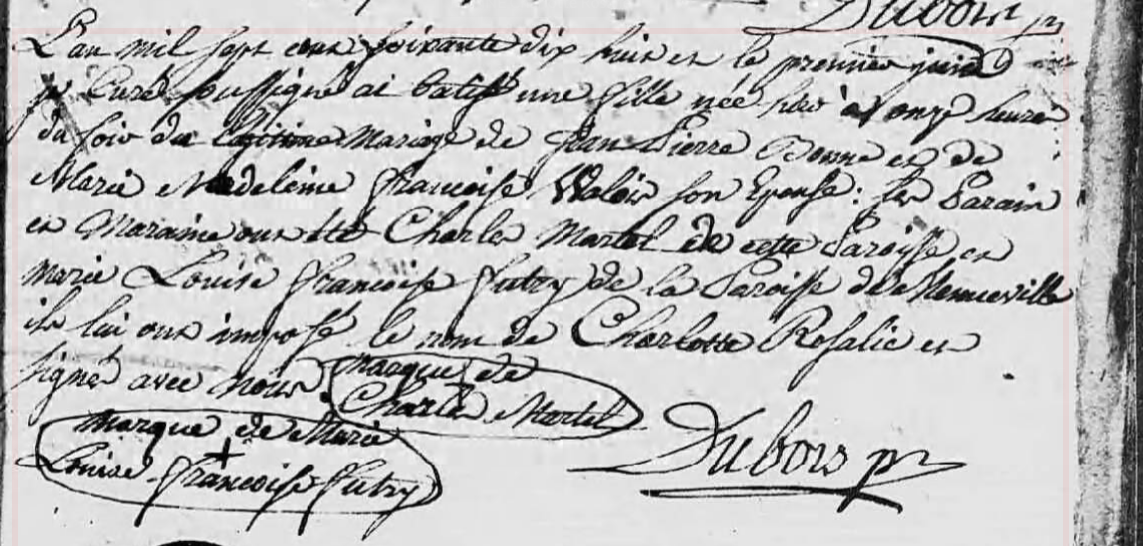 Dubois p
L'an mil sept cent soixante dix huit et le premier juin
Curé soussigné ai batisé une fille née hier à onze heures
du soir du légitime mariage de Jean Pierre Bonne et de
Marie Madeleine françoise Valois son Epouse : les Parain
et Maraine ont été Charles Martel de cette Paroisse et
marie Louise françoise futry de la Paroisse de
ils lui ont imposé le nom de Charlotte Rosalie et
signé avec nous. marque de
Charles Martel
marque de Marie
Louise françoise futry
Dubois p